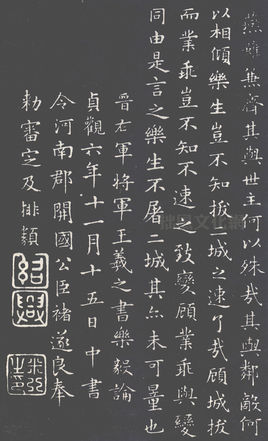 燕雖兼齊其與世主何以殊哉其與鄰敵何
以相傾樂生豈不知拔二城之速了哉顧城拔
而業乖豈不知不速之致變顧業乖與變
同由是言之樂生不屠二城其亦未可量也
晉右軍將軍王羲之書樂毅論
貞觀六年十一月十五日中書
令河南郡開國公臣褚遂良奉
勅審定及排類
紹興